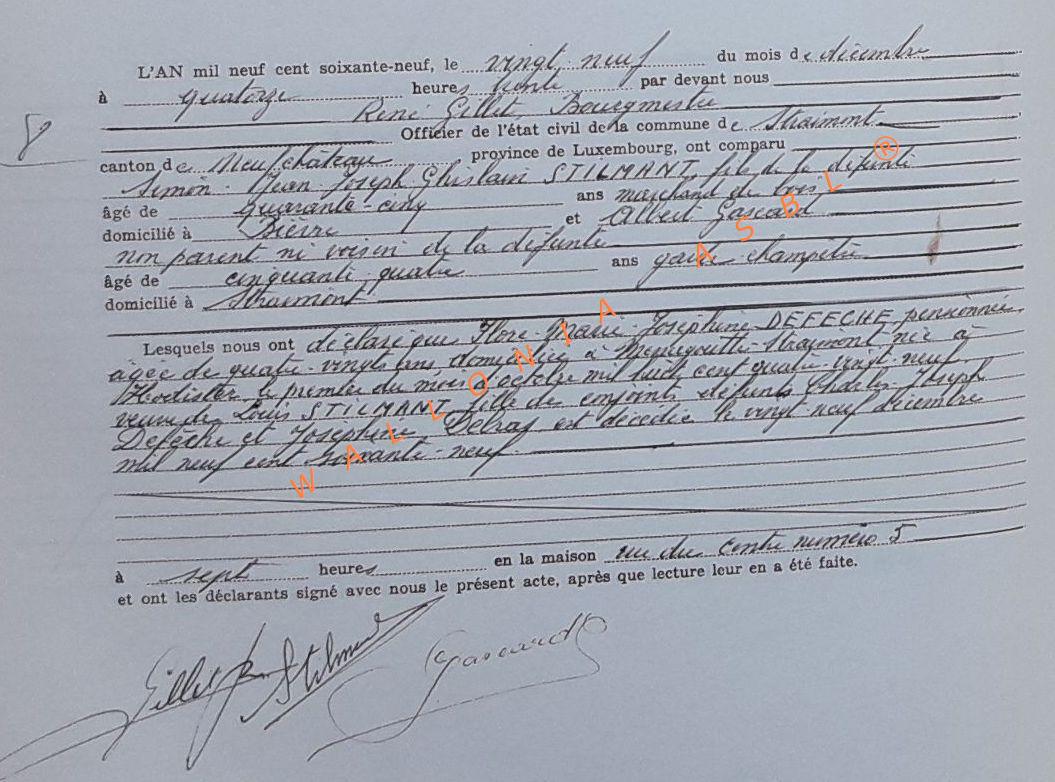 L'AN mil neuf cent soixante-neuf, le vingt neuf du mois de décembre
à quatorze heures trente par devant nous
René Gillet, Bourgmestre
8
Officier de l'état civil de la commune de Straimont
canton de Neufchâteau province de Luxembourg, ont comparu
Simon Jean Joseph Ghislain STILMANT, fils de la défunte
âgé de quarante-cinq ans marchand de bois
domicilié à et Albert Gascard
non parent ni voisin de la défunte
âgé de cinquante quatre ans garde champêtre
domicilié à Straimont
Lesquels nous ont déclaré que Flore-Marie-Joséphine DEFECHE, pensionnée
âgée de quatre-vingts ans, domiciliée à Menugoutte-Straimont née à
Hodister le premier du mois d'octobre mil huit cent quatre-vingt-neuf
veuve de Louis STILMANT, fille de conjoints défunts Charles Joseph
Defèche et Joséphine est décédée le vingt-neuf décembre
mil neuf cent soixante-neuf
à sept heures en la maison rue du centre numéro 5
et ont les déclarants signé avec nous le présent acte, après que lecture leur en a été faite.
Gillet Stilmant Gascard
WALLONIA ASBL®